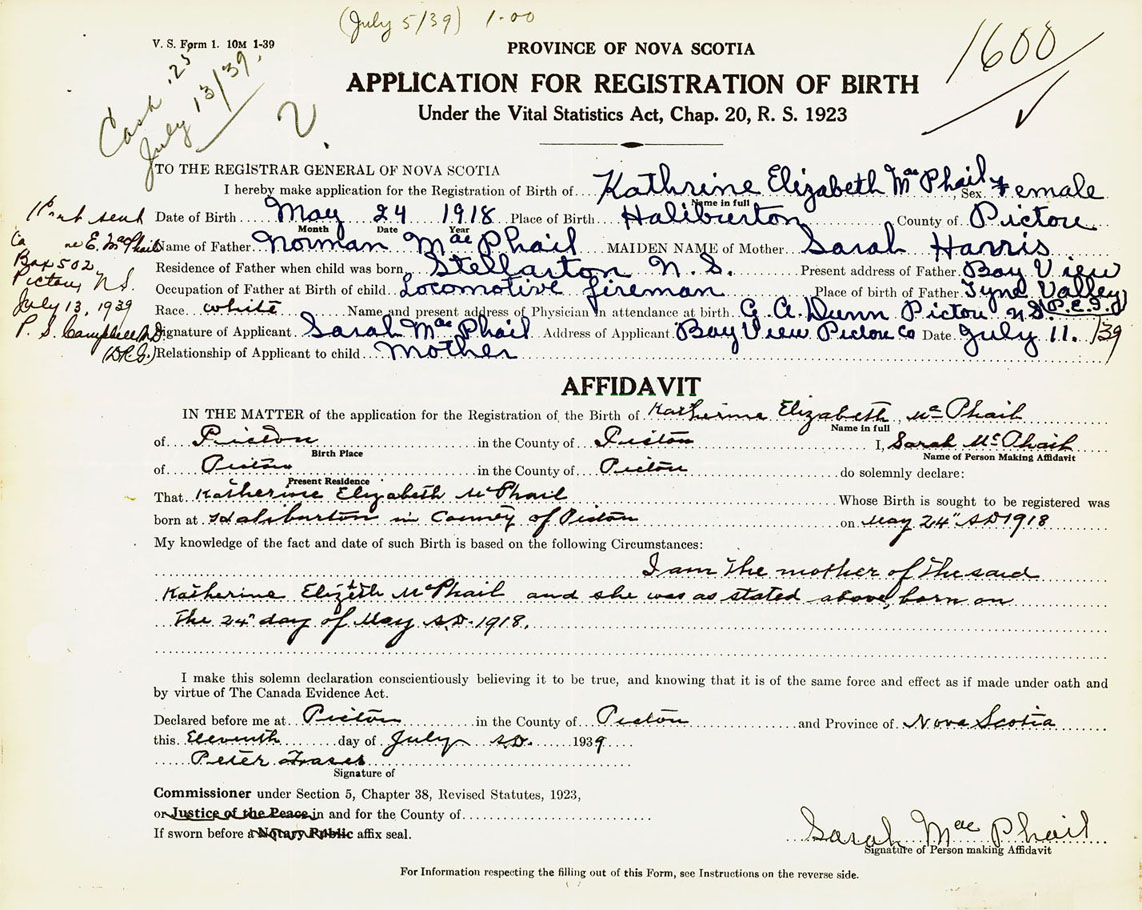 (July 5/39) 1.00
V. S. Form 1. 10M 1-39
Cash .25
July 13/39.
2.
1600
PROVINCE OF NOVA SCOTIA
APPLICATION FOR REGISTRATION OF BIRTH
Under the Vital Statistics Act, Chap. 20, R. S. 1923
TO THE REGISTRAR GENERAL OF NOVA SCOTIA
I hereby make application for the Registration of Birth of Kathrine Elizabeth MacPhail Sex Female
Name in full
Date of Birth May 24 1918 Place of Birth Haliburton County of Pictou
Month Date Year
Name of Father Norman MacPhail MAIDEN NAME of Mother Sarah Harris
Residence of Father when child was born Stellarton N. S. Present address of Father Bay View
Occupation of Father at Birth of child Locomotive fireman Place of birth of Father Tyne Valley P.E.I.
Race white Name and present address of Physician in attendance at birth G. A. Dunn Pictou N.S.
Signature of Applicant Sarah MacPhail Address of Applicant Bay View Pictou Co Date July 11. /39
Relationship of Applicant to child Mother
sent
E. MacPhail
Box 502,
Pictou, N.S.
July 13, 1939
P. S. Campbell M.D.
(D.R.G.)
AFFIDAVIT
IN THE MATTER of the application for the Registration of the Birth of Katherine Elizabeth McPhail
Name in full
of Pictou in the County of Pictou I, Sarah McPhail
Birth Place Name of Person Making Affidavit
of Pictou in the County of Pictou do solemnly declare:
Present Residence
That Katherine Elizabeth McPhail Whose Birth is sought to be registered was
born at Haliburton in County of Pictou on May 24" AD 1918
My knowledge of the fact and date of such Birth is based on the following Circumstances:
I am the mother of the said
Katherine Elizabeth McPhail and she was as stated above, born on
the 24" day of May A.D. 1918.
I make this solemn declaration conscientiously believing it to be true, and knowing that it is of the same force and effect as if made under oath and
by virtue of The Canada Evidence Act.
Declared before me at Pictou in the County of Pictou and Province of Nova Scotia
this Eleventh day of July A.D. 1939
Peter Fraser
Signature of
Commissioner under Section 5, Chapter 38, Revised Statutes, 1923,
or Justice of the Peace in and for the County of
If sworn before a Notary Public affix seal.
Sarah MacPhail
Signature of Person making Affidavit
For Information respecting the filling out of this Form, see Instructions on the reverse side.